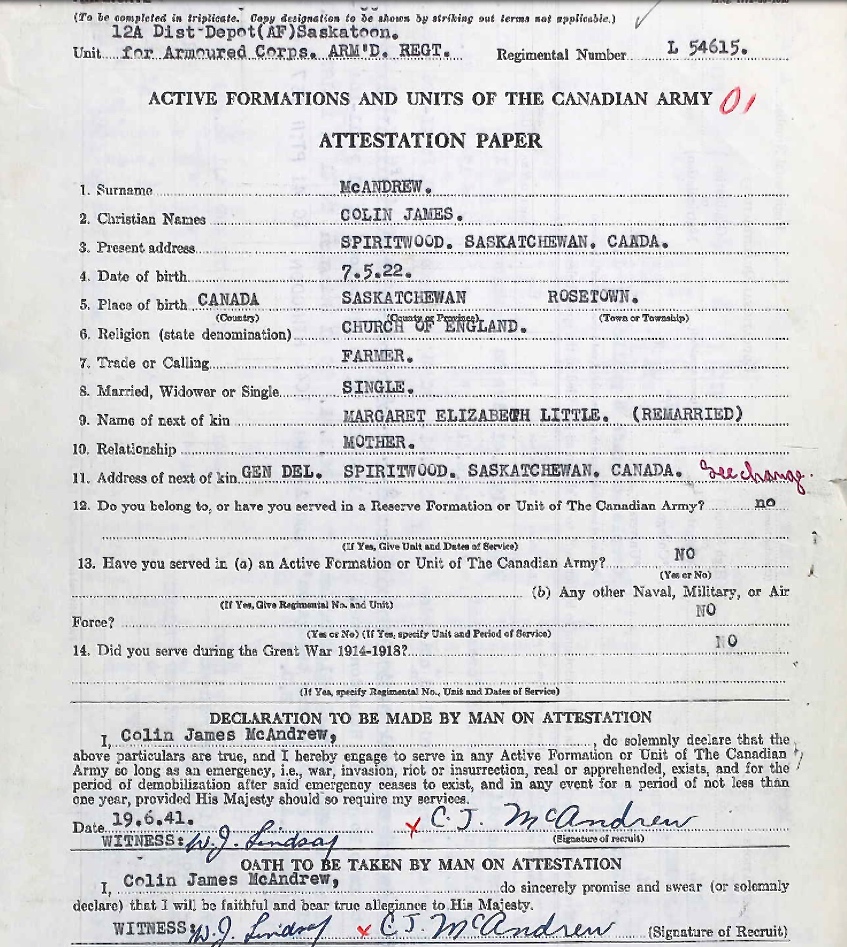 (To be completed in triplicate. Copy designation to be shown by striking out terms not applicable.)
12A Dist-Depot(AF)Saskatoon.
Unit for Armoured Corps. ARM'D. REGT. Regimental Number L 54615.
ACTIVE FORMATIONS AND UNITS OF THE CANADIAN ARMY 01
ATTESTATION PAPER
1. Surname McANDREW.
2. Christian Names COLIN JAMES.
3. Present address SPIRITWOOD. SASKATCHEWAN. CAANDA.
4. Date of birth 7.5.22.
5. Place of birth CANADA SASKATCHEWAN ROSETOWN.
(Country) (County or Province) (Town or Township)
6. Religion (state denomination) CHURCH OF ENGLAND.
7. Trade or Calling FARMER.
8. Married, Widower or Single SINGLE.
9. Name of next of kin MARGARET ELIZABETH LITTLE. (REMARRIED)
10. Relationship MOTHER.
11. Address of next of kin GEN DEL. SPIRITWOOD. SASKATCHEWAN. CANADA. See change.
12. Do you belong to, or have you served in a Reserve Formation or Unit of The Canadian Army? no
(If Yes, Give Unit and Dates of Service)
13. Have you served in (a) an Active Formation or Unit of The Canadian Army? NO
(Yes or No)
(b) Any other Naval, Military, or Air
(If Yes, Give Regimental No. and Unit) NO
Force?
(Yes or No) (If Yes, specify Unit and Period of Service)
14. Did you serve during the Great War 1914-1918? NO
(If Yes, specify Regimental No., Unit and Dates of Service)
DECLARATION TO BE MADE BY MAN ON ATTESTATION
I, Colin James McAndrew, do solemnly declare that the
above particulars are true, and I hereby engage to serve in any Active Formation or Unit of The Canadian
Army so long as an emergency, i.e., war, invasion, riot or insurrection, real or apprehended, exists, and for the
period of demobilization after said emergency ceases to exist, and in any event for a period of not less than
one year, provided His Majesty should so require my services.
Date 19.6.41. x C. J. McAndrew
WITNESS: W. J. Lindsay (Signature of recruit)
OATH TO BE TAKEN BY MAN ON ATTESTATION
I, Colin James McAndrew, do sincerely promise and swear (or solemnly
declare) that I will be faithful and bear true allegiance to His Majesty.
WITNESS: W. J. Lindsay x C J. McAndrew (Signature of Recruit)